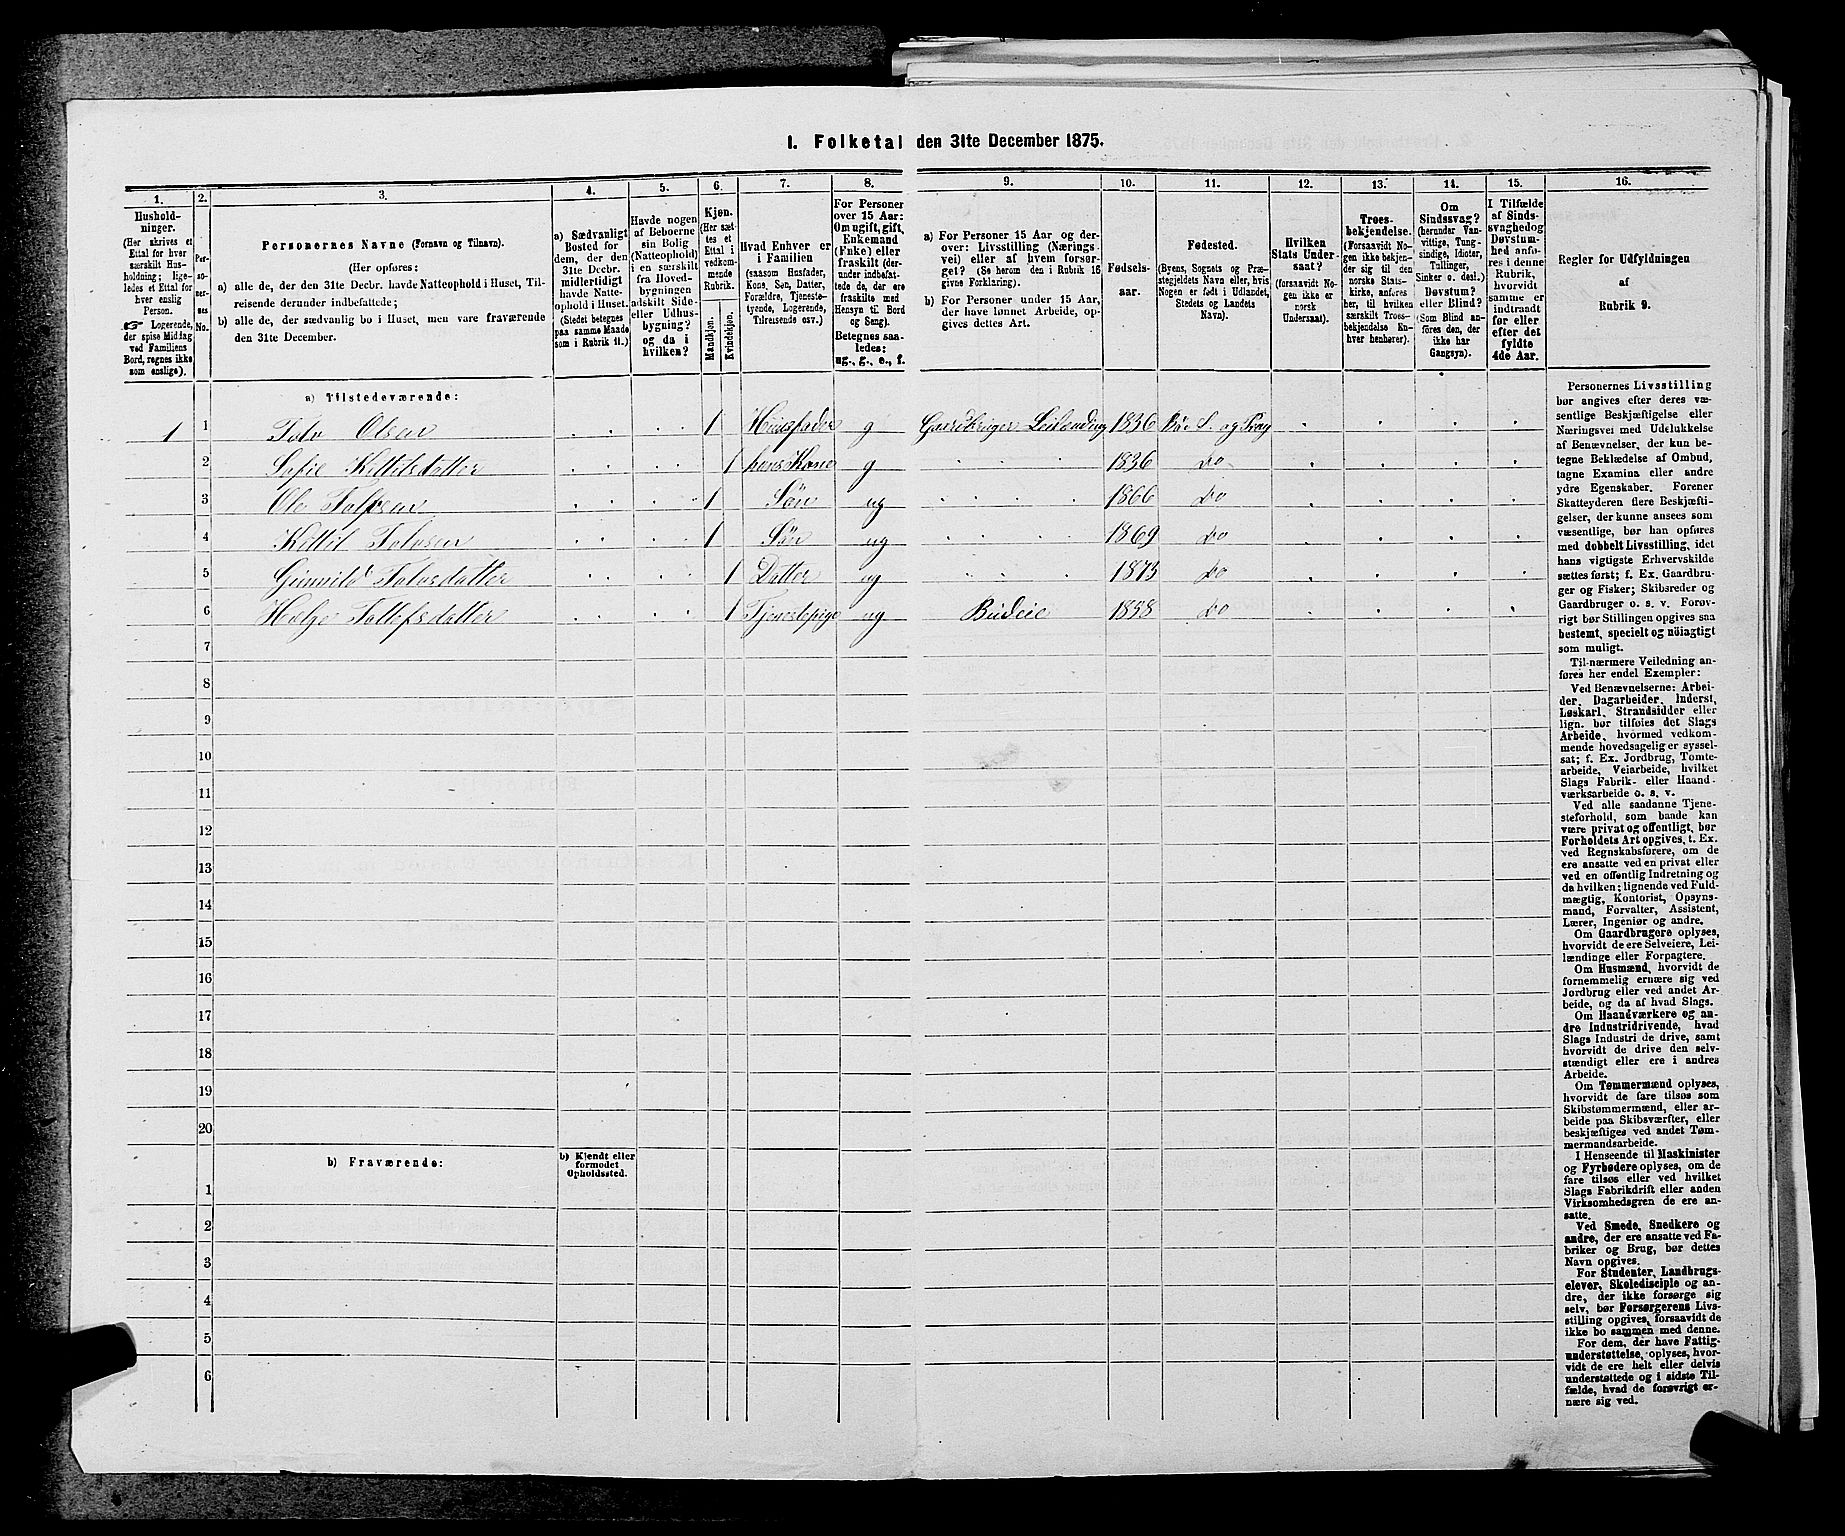 I. Folketal den 31te December 1875.
1.
Hushold-
ninger.
(Her skrives et
Ettal for hver
særskilt Hus-
holdning; lige-
ledes et Ettal for
hver enslig
Person.
☞ Logerende,
der spise Middag
ved Familiens
Bord, regnes ikke
som enslige).
2.
Per-
so-
ner-
nes
No.
3.
Personernes Navne (Fornavn og Tilnavn).
(Her opføres:
a) alle de, der den 31te Decbr. havde Natteophold i Huset, Til-
reisende derunder indbefattede;
b) alle de, der sædvanlig bo i Huset, men vare fraværende
den 31te December.
4.
a) Sædvanligt
Bosted for
dem, der den
31te Decbr.
midlertidigt
havde Natte-
ophold i Huset.
(Stedet betegnes
paa samme Maade
som i Rubrik 11.)
5.
Havde nogen
af Beboerne
sin Bolig
(Natteophold)
i en særskilt
fra Hoved-
bygningen
adskilt Side-
eller Udhus-
bygning?
og da i
hvilken?
6.
Kjøn.
(Her sæt-
tes et
Ettal i
vedkom-
mende
Rubrik.
Mandkjøn.
Kvindekjøn.
7.
Hvad Enhver er
i Familien
(saasom Husfader,
Kone, Søn, Datter,
Forældre, Tjeneste-
tyende, Logerende,
Tilreisende osv.)
8.
For Personer
over 15 Aar:
Om ugift, gift,
Enkemand
(Enke) eller
fraskilt (der-
under indbefat-
tede de, der ere
fraskilte med
Hensyn til Bord
og Seng).
Betegnes saa-
ledes:
ug., g., e., f.
9.
a) For Personer 15 Aar og der-
over: Livsstilling (Nærings-
vei) eller af hvem forsør-
get? (Se herom den i Rubrik 16
givne Forklaring).
b) For Personer under 15 Aar,
der have lønnet Arbeide, op-
gives dettes Art.
10.
Fødsels-
aar.
11.
Fødested.
(Byens, Sognets og Præ-
stegjeldets Navn eller, hvis
Nogen er født i Udlandet,
Stedets og Landets
Navn).
12.
Hvilken
Stats Under-
saat?
(forsaavidt No-
gen ikke er
norsk
Undersaat).
13.
Troes-
bekjendelse.
(Forsaavidt No-
gen ikke bekjen-
der sig til den
norske Stats-
kirke, anføres
her, til hvilken
særskilt Troes-
bekjendelse En-
hver henhører).
14.
Om
Sindssvag?
(herunder Van-
vittige, Tung-
sindige, Idioter,
Tullinger,
Sinker o. desl.)
Døvstum?
eller Blind?
(Som Blind an-
føres den, der
ikke har
Gangsyn).
15.
I Tilfælde
af Sinds-
svaghed og
Døvstum-
hed anfø-
res i denne
Rubrik,
hvorvidt
samme er
indtraadt
før eller
efter det
fyldte
4de Aar.
16.
Regler for Udfyldningen
af
Rubrik 9.
a) Tilstedeværende:
1 1 Tolv Olsen 1 Huusfader g Gaardbruger Leilænding 1836 Bøe S. og Præg
2 Sofie Kettilsdatter 1 hans Kone g 1836 Do
3 Ole Tolvsen 1 Søn ug 1866 Do
4 Kettil Tolvsen 1 Søn ug 1869 Do
5 Gunvild Tolvsdatter 1 Datter ug 1873 Do
6 Helge Tollefsdatter 1 Tjenestepige ug Budeie 1858 Do
7
8
9
10
11
12
13
14
15
16
17
18
19
20
b) Fraværende:
b) Kjendt eller
formodet
Opholdssted.
1
2
3
4
5
6
Personernes Livsstilling
bør angives efter deres væ-
sentlige Beskjæftigelse eller
Næringsvei med Udelukkelse
af Benævnelser, der kun be-
tegne Beklædelse af Ombud,
tagne Examina eller andre
ydre Egenskaber. Forener
Skatteyderen flere Beskjæfti-
gelser, der kunne ansees som
væsentlige, bør han opføres
med dobbelt Livsstilling, idet
hans vigtigste Erhvervskilde
sættes først; f. Ex. Gaardbru-
ger og Fisker; Skibsreder og
Gaardbruger o. s. v. Forøv-
rigt bør Stillingen opgives saa
bestemt, specielt og nøiagtigt
som muligt.
Til nærmere Veiledning an-
føres her endel Exempler:
Ved Benævnelserne: Arbei-
der, Dagarbeider, Inderst,
Løskarl, Strandsidder eller
lign. bør tilføies det Slags
Arbeide, hvormed vedkom-
mende hovedsagelig er syssel-
sat; f. Ex. Jordbrug, Tomte-
arbeide, Veiarbeide, hvilket
Slags Fabrik- eller Haand-
værksarbeide o. s. v.
Ved alle saadanne Tjene-
steforhold, som baade kan
være privat og offentligt, bør
Forholdets Art opgives, t. Ex.
ved Regnskabsførere, om de
ere ansatte ved en privat eller
ved en offentlig Indretning og
da hvilken; lignende ved Fuld-
mægtig, Kontorist, Opsyns-
mand, Forvalter, Assistent,
Lærer, Ingeniør og andre.
Om Gaardbrugere oplyses,
hvorvidt de ere Selveiere, Lei-
lændinge eller Forpagtere.
Om Husmænd, hvorvidt de
fornemmelig ernære sig ved
Jordbrug eller ved andet Ar-
beide, og da af hvad Slags.
Om Haandværkere og an-
dre Industridrivende, hvad
Slags Industri de drive, samt
hvorvidt de drive den selv-
stændigt eller ere i andres
Arbeide.
Om Tømmermænd oplyses,
hvorvidt de fare tilsøs som
Skibstømmermænd, eller ar-
beide paa Skibsværfter, eller
beskjæftiges ved andet Tøm-
mermandsarbeide.
I Henseende til Maskinister
og Fyrbødere oplyses, om de
fare tilsøs eller ved hvilket
Slags Fabrikdrift eller anden
Virksomhedsgren de ere an-
satte.
Ved Smede, Snedkere og
andre, der ere ansatte ved Fa-
briker og Brug, bør dettes
Navn opgives.
For Studenter, Landbrugs-
elever, Skoledisciple og an-
dre, der ikke forsørge sig
selv, bør Forsørgerens Livs-
stilling opgives, forsaavidt de
ikke bo sammen med denne.
For dem, der have Fattig-
understøttelse, oplyses, hvor-
vidt de ere helt eller delvis
understøttede og i sidste Til-
fælde, hvad de forøvrigt er-
nære sig ved.